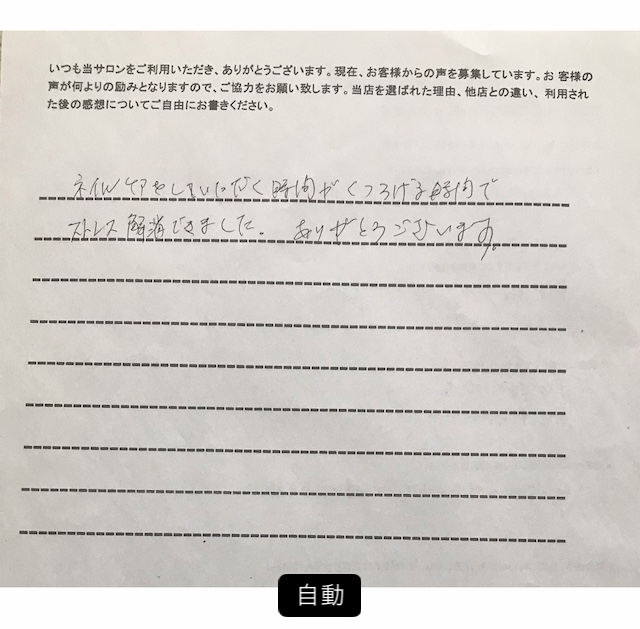 いつも当サロンをご利用いただき、ありがとうございます。現在、お客様からの声を募集しています。お 客様の
声が何よりの励みとなりますので、ご協力をお願い致します。当店を選ばれた理由、他店との違い、 利用され
た後の感想についてご自由にお書きください。
ネイルケアをしていただく時間がくつろげる時間で
ストレス解消できました。 ありがとうございます。
自動